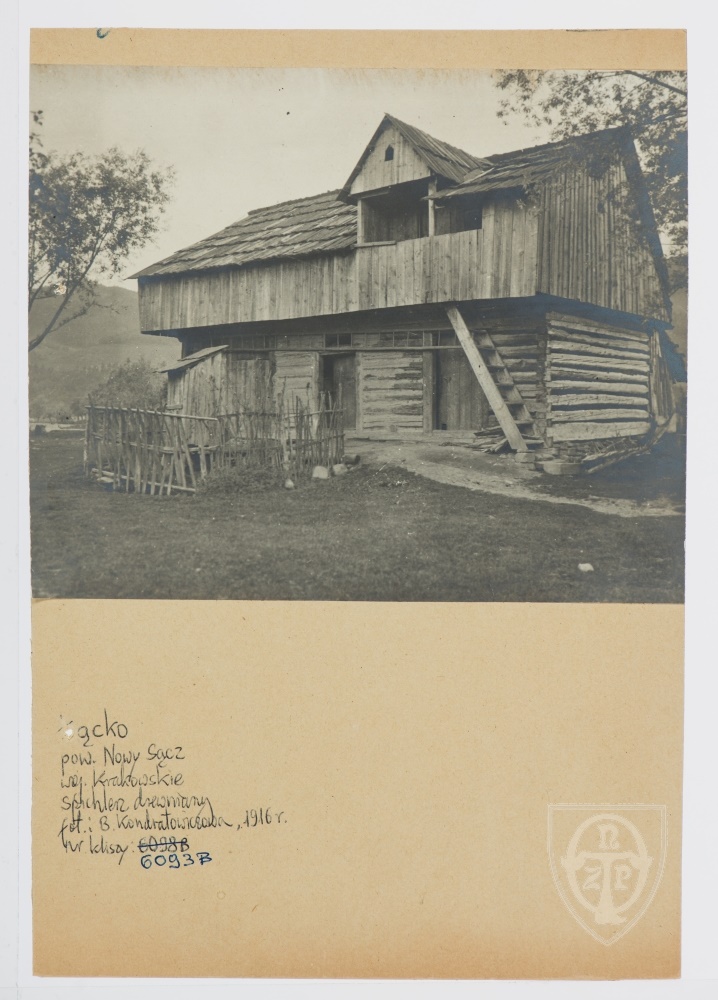 Łącko
pow. Nowy Sącz
woj. Krakowskie
spichlerz drewniany
fot.: B. Kondratowiczowa, 1916 r.
nr kliszy: 6098B
6093B
TNZP